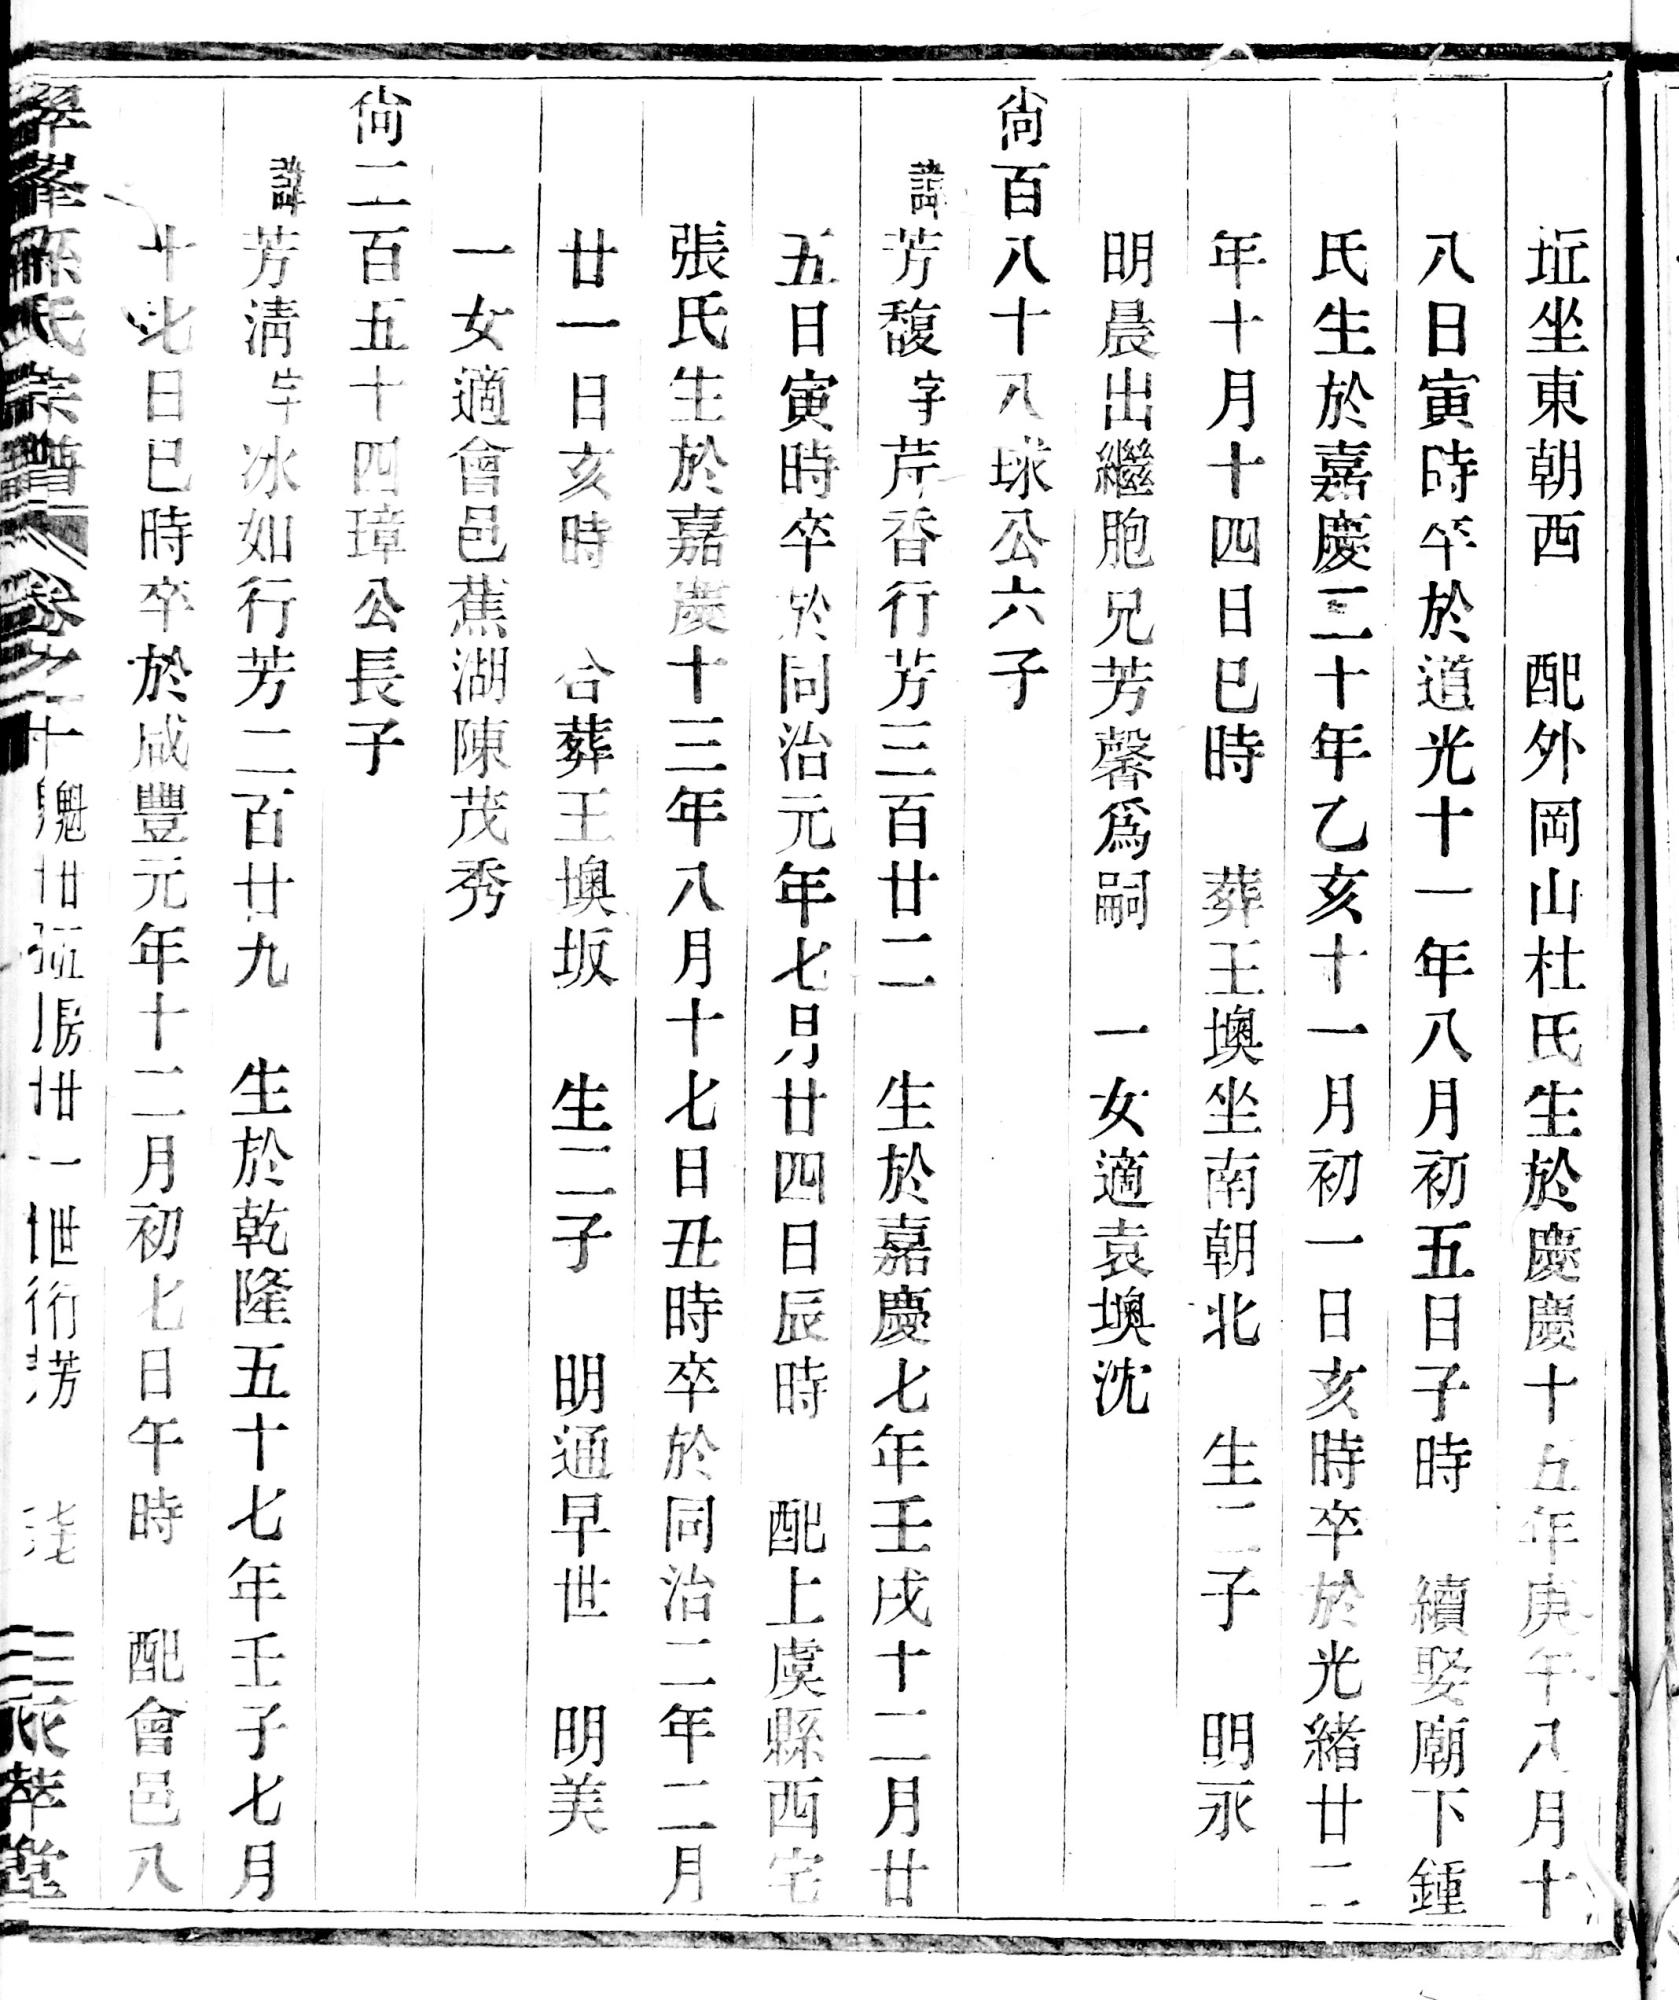 坵坐東朝西　配外岡山杜氏生於慶慶十五年庚午八月十
八日寅時卒於道光十一年八月初五日子時　續娶廟下鍾
氏生於嘉慶二十年乙亥十一月初一日亥時卒於光緒廿二
年十月十四日巳時　葬王墺坐南朝北　生二子　明永
明晨出繼胞兄芳馨爲嗣　一女適袁墺沈
尙百八十八球公六子
諱芳馥字芹香行芳三百廿二　生於嘉慶七年壬戌十二月廿
五日寅時卒於同治元年七月廿四日辰時　配上虞縣西宅
張氏生於嘉慶十三年八月十七日丑時卒於同治二年二月
廿一日亥時　合葬王墺坂　生二子　明通早世　明美
一女適會邑蕉湖陳茂秀
尙二百五十四璋公長子
諱芳淸字冰如行芳二百廿九　生於乾隆五十七年壬子七月
十七日巳時卒於咸豐元年十二月初七日午時　配會邑八
孫氏宗譜　卷之十　廿一世行芳　萃堂